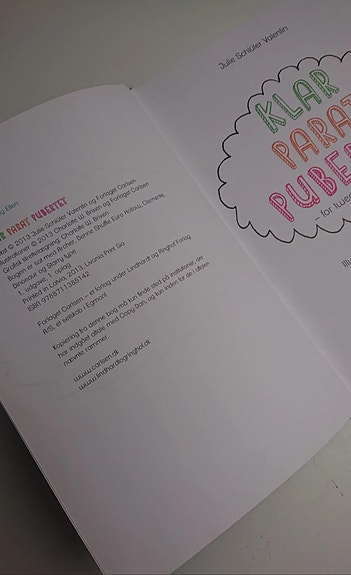 og Ellen
PARAT PUBERTET
© 2013 Julie Schlüer Valentin og Forlaget Carlsen
© 2013 Charlotte W. Briven og Forlaget Carlsen
Grafisk tilrettelægning: Charlotte W. Briven
Bogen er sat med Archer, Denne Shuffle Euro Hollow, Clemente,
Dinosaur og Starry type
1. udgave, 1. oplag
Printed in Latvia, 2013, Livonia Print Sia
ISBN 9788711385142
Forlaget Carlsen – et forlag under Lindhardt og Ringhof Forlag
A/S, et selskab i Egmont
Kopiering fra denne bog må kun finde sted på institutioner, der
har indgået aftale med Copy-Dan, og kun inden for de i aftalen
nævnte rammer.
www.carlsen.dk
www.lindhardtogringhof.dk
Julie Schlüer Valentin
KLAR
PARAT
PUBE
– for twe